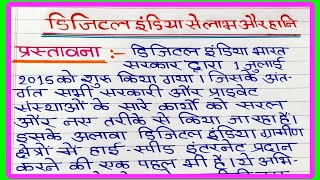 डिजिटल इंडिया से लाभ और हानि
प्रस्तावना :- डिजिटल इंडिया भारत
सरकार द्वारा 1 जुलाई
2015 को शुरु किया गया। जिसके अंत-
र्गत सभी सरकारी और प्राइवेट
संस्थाओं के सारे कार्यों को सरल
और नए तरीके से किया जा रहा है।
इसके अलावा डिजिटल इंडिया ग्रामीण
क्षेत्रों में हाई-स्पीड इंटरनेट प्रदान
करने की एक पहल भी है। ये अभि-